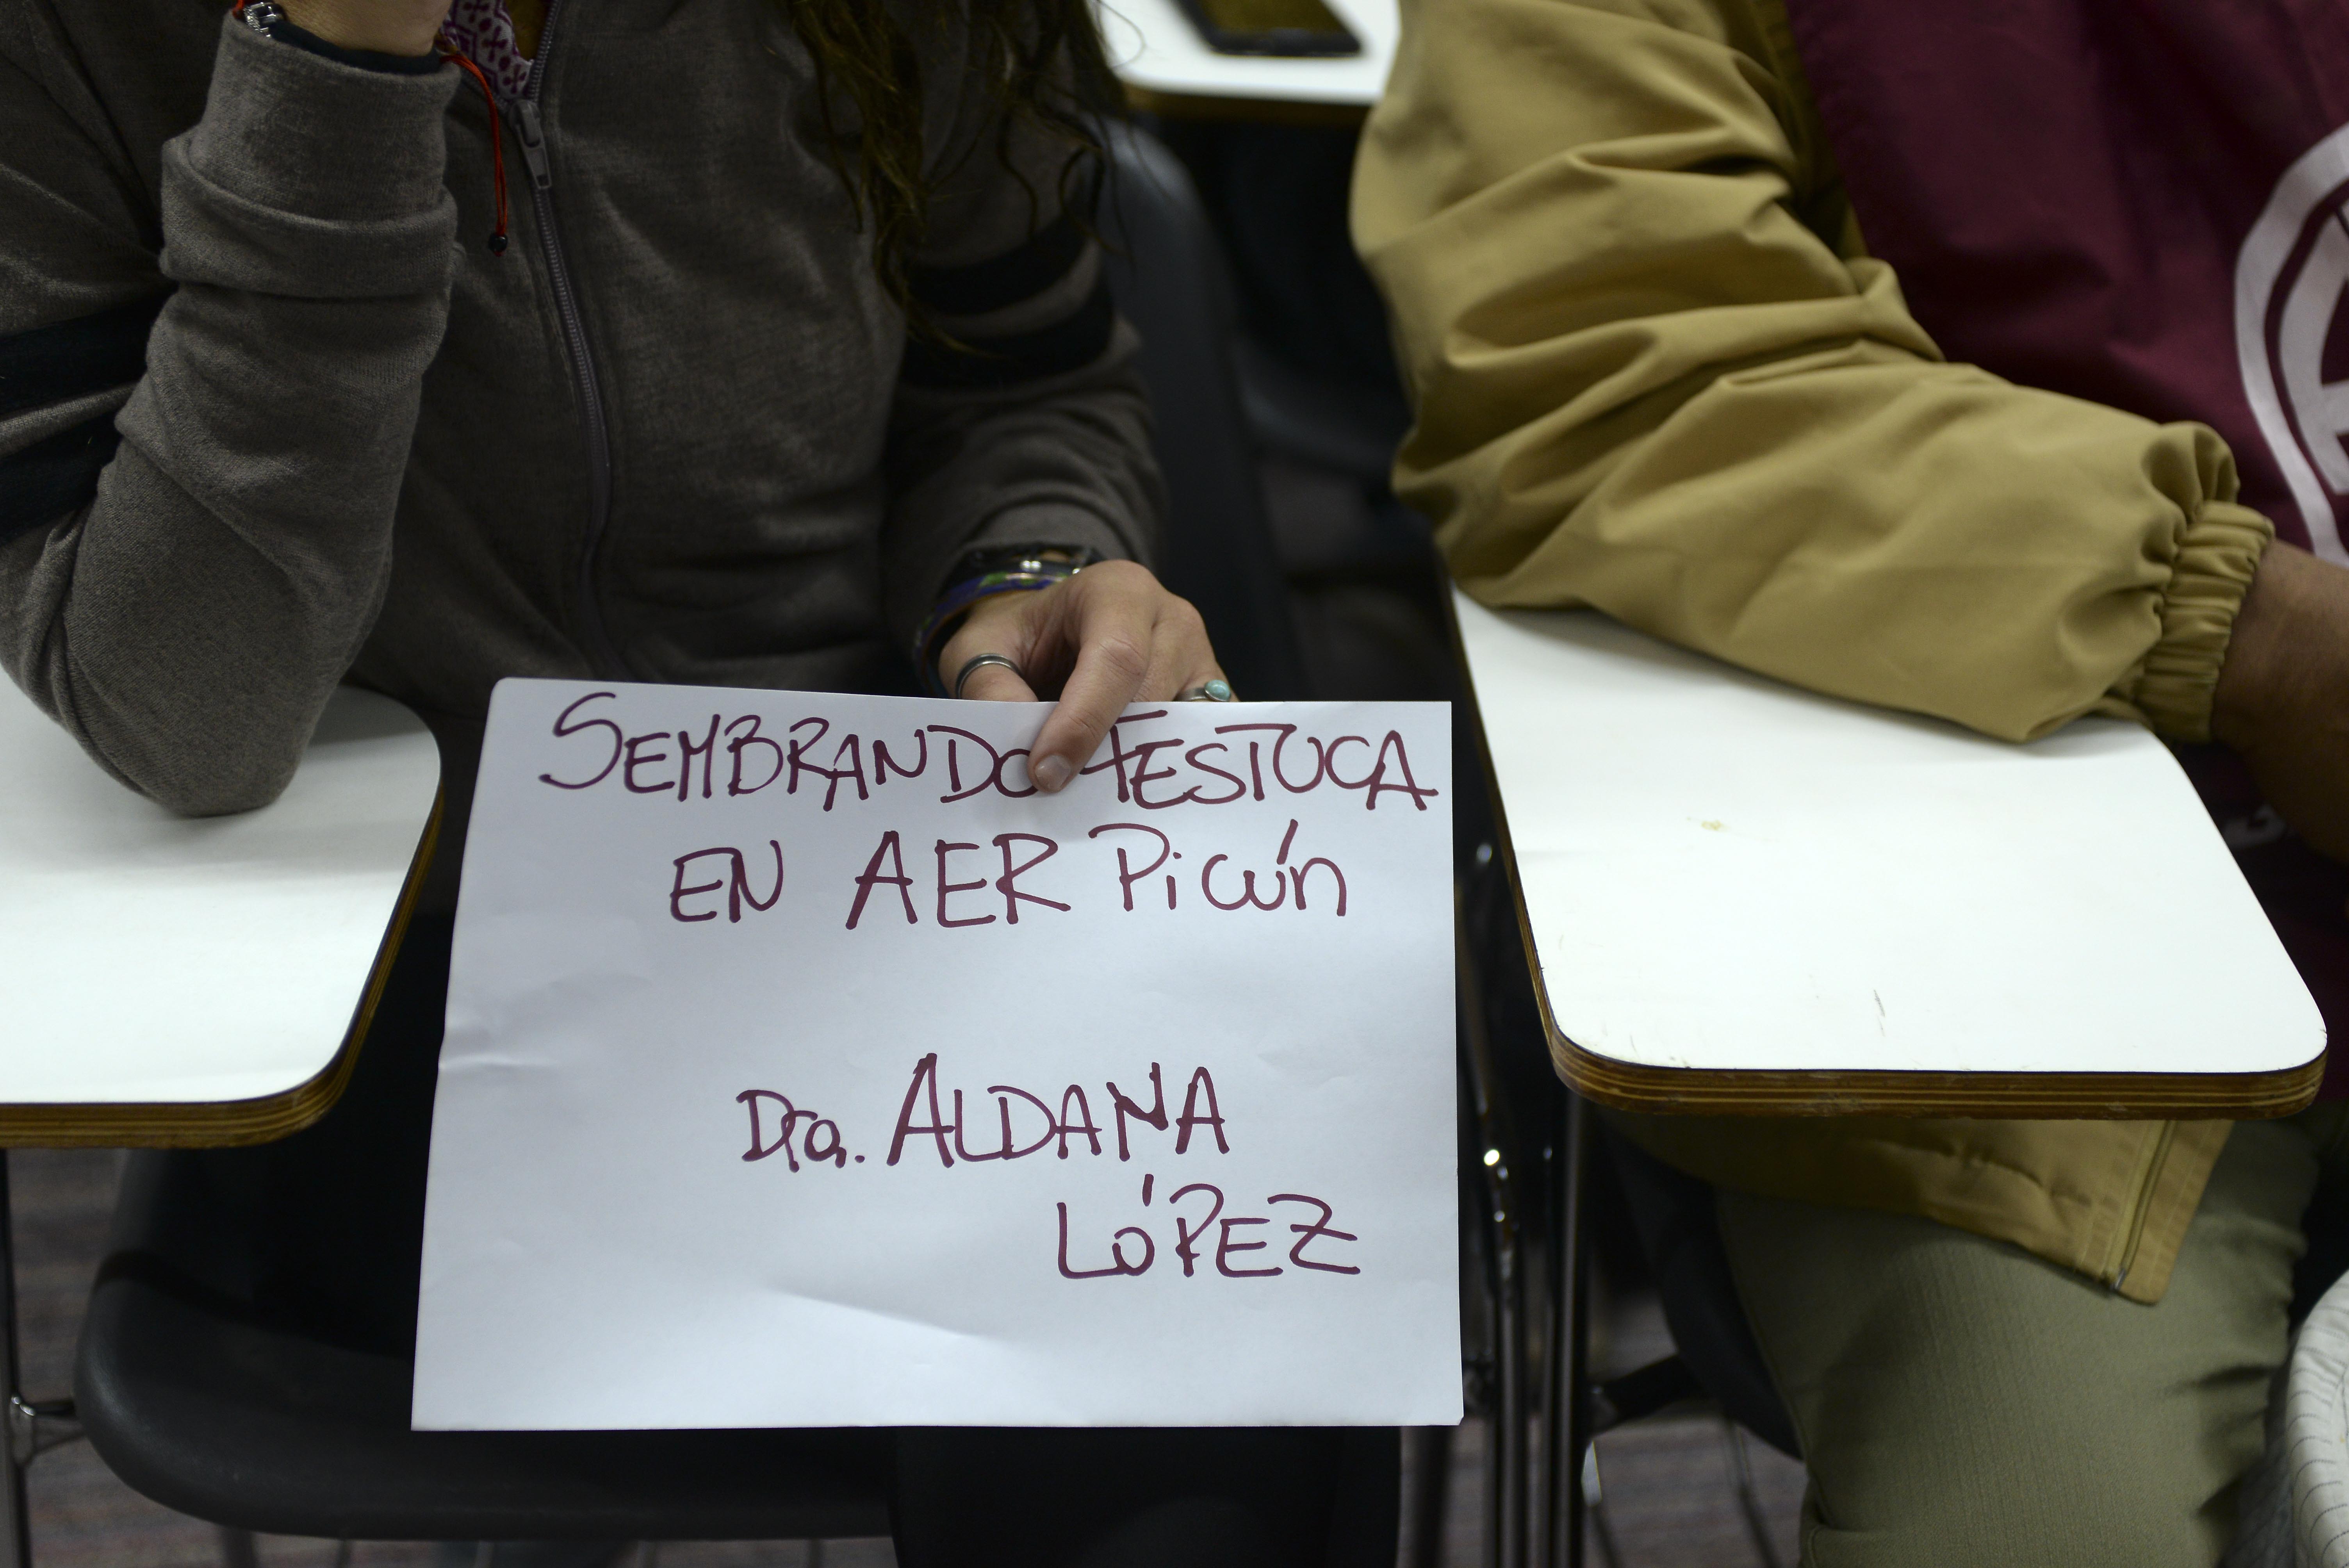 SEMBRANDO FESTUCA
EN AER Picún
Dra. ALDANA
LÓPEZ